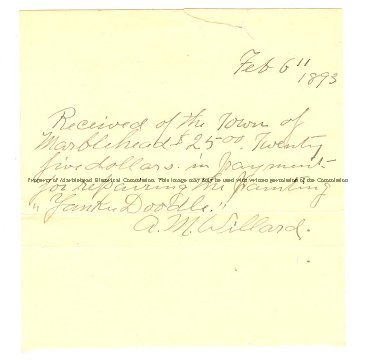 Feb 6"
1893
Received of the Town of
Marblehead $25.00. Twenty
five dollars. in payment
for repairing the painting
Property of Marblehead Historical Commission. This image may only be used with written permission of the Commission
"Yankee Doodle."
A. M. Willard.